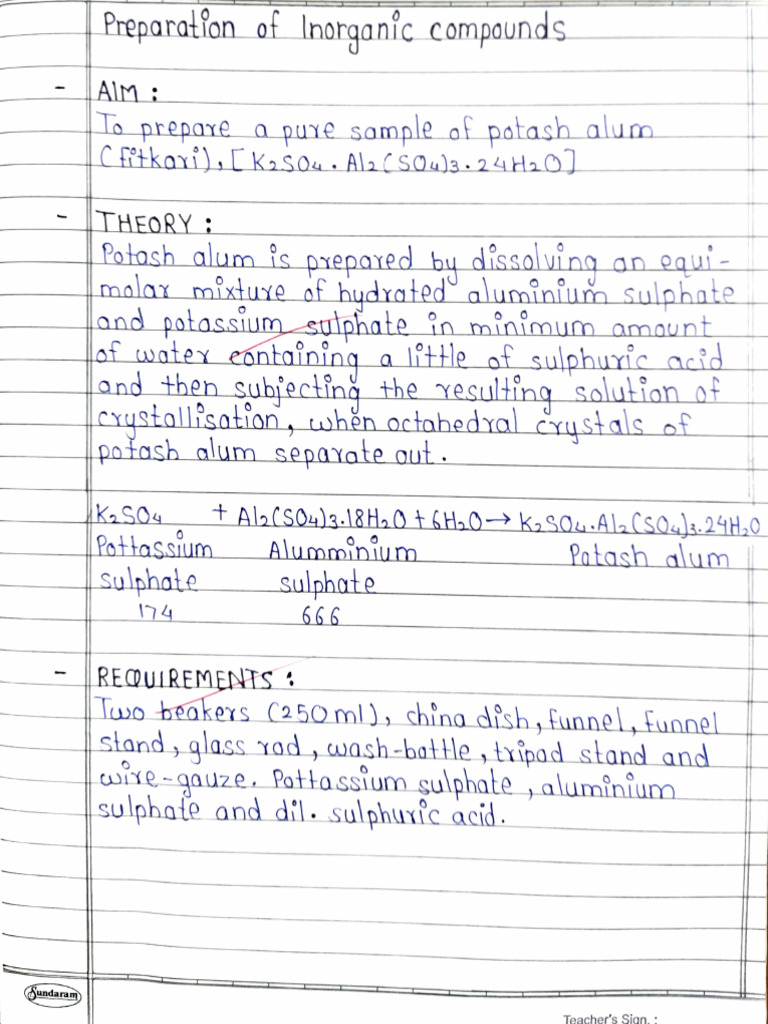 Preparation of Inorganic compounds
- AIM :
To prepare a pure sample of potash alum
(fitkari), [K2SO4 . Al2(SO4)3 . 24H2O]
- THEORY :
Potash alum is prepared by dissolving an equi-
molar mixture of hydrated aluminium sulphate
and potassium sulphate in minimum amount
of water containing a little of sulphuric acid
and then subjecting the resulting solution of
crystallisation, when octahedral crystals of
potash alum separate out.
K2SO4 + Al2(SO4)3.18H2O + 6H2O → K2SO4.Al2(SO4)3.24H2O
Pottassium Alumminium Potash alum
sulphate sulphate
174 666
- REQUIREMENTS :
Two beakers (250ml), china dish, funnel, funnel
stand, glass rod, wash-bottle, tripod stand and
wire-gauze. Pottassium sulphate, aluminium
sulphate and dil. sulphuric acid.
Sundaram
Teacher's Sign. :